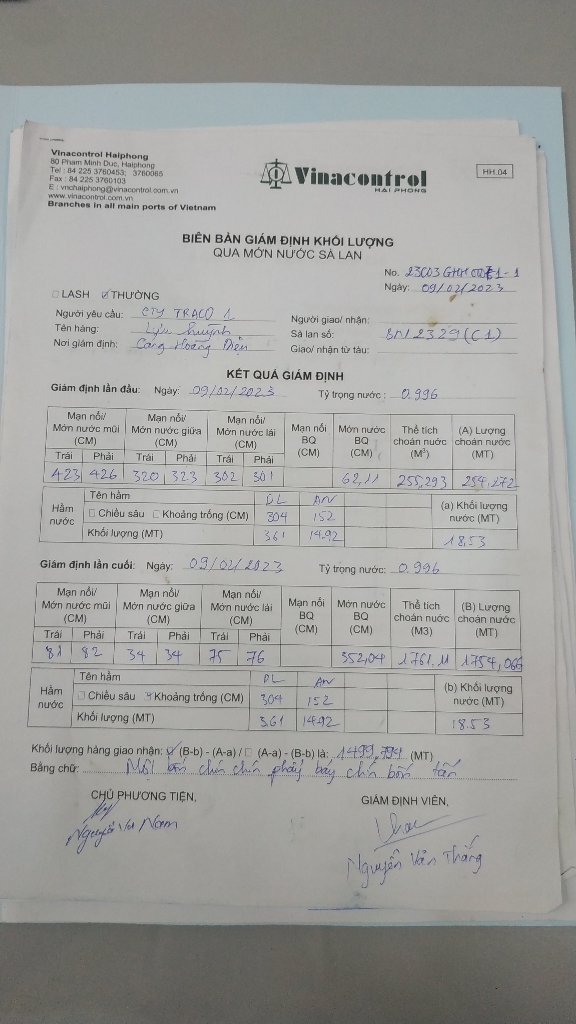 Vinacontrol Haiphong
80 Pham Minh Duc, Haiphong
Tel : 84 225 3760453; 3760065
Fax : 84 225 3760103
E : vnchaiphong@vinacontrol.com.vn
www.vinacontrol.com.vn
Branches in all main ports of Vietnam
Vinacontrol
HAI PHONG
HH.04
BIÊN BẢN GIÁM ĐỊNH KHỐI LƯỢNG
QUA MỚN NƯỚC SÀ LAN
No. 23C03GHH 1-1
Ngày: 09/02/2023
LASH THƯỜNG
Người yêu cầu: CTY TRACO 1
Người giao/ nhận:
Tên hàng: Lưu huỳnh
Sà lan số: 2329 (C1)
Nơi giám định: Cảng Hoàng Diệu
Giao/ nhận từ tàu:
KẾT QUẢ GIÁM ĐỊNH
Giám định lần đầu: Ngày: 09/02/2023 Tỷ trọng nước : 0.996
Mạn nổi/ Mớn nước mũi (CM) Mạn nổi/ Mớn nước giữa (CM) Mạn nổi/ Mớn nước lái (CM) Mạn nổi BQ (CM) Mớn nước BQ (CM) Thể tích choán nước (M³) (A) Lượng choán nước (MT)
Trái Phải Trái Phải Trái Phải
423 426 320 323 302 301 62,11 255,293 254,272
Hầm nước Tên hầm DL AN (a) Khối lượng nước (MT)
Chiều sâu Khoảng trống (CM) 304 152
Khối lượng (MT) 3.61 14.92 18.53
Giám định lần cuối: Ngày: 09/02/2023 Tỷ trọng nước: 0.996
Mạn nổi/ Mớn nước mũi (CM) Mạn nổi/ Mớn nước giữa (CM) Mạn nổi/ Mớn nước lái (CM) Mạn nổi BQ (CM) Mớn nước BQ (CM) Thể tích choán nước (M3) (B) Lượng choán nước (MT)
Trái Phải Trái Phải Trái Phải
81 82 34 34 75 76 352,04 1761,11 1754,066
Hầm nước Tên hầm DL AN (b) Khối lượng nước (MT)
Chiều sâu Khoảng trống (CM) 304 152
Khối lượng (MT) 3.61 14.92 18.53
Khối lượng hàng giao nhận: (B-b) - (A-a) / (A-a) - (B-b) là: 1499,794 (MT)
Bằng chữ: Một bốn chín chín phẩy bảy chín bốn tấn
CHỦ PHƯƠNG TIỆN, GIÁM ĐỊNH VIÊN,
Nguyễn Nam
Nguyễn Văn Thắng